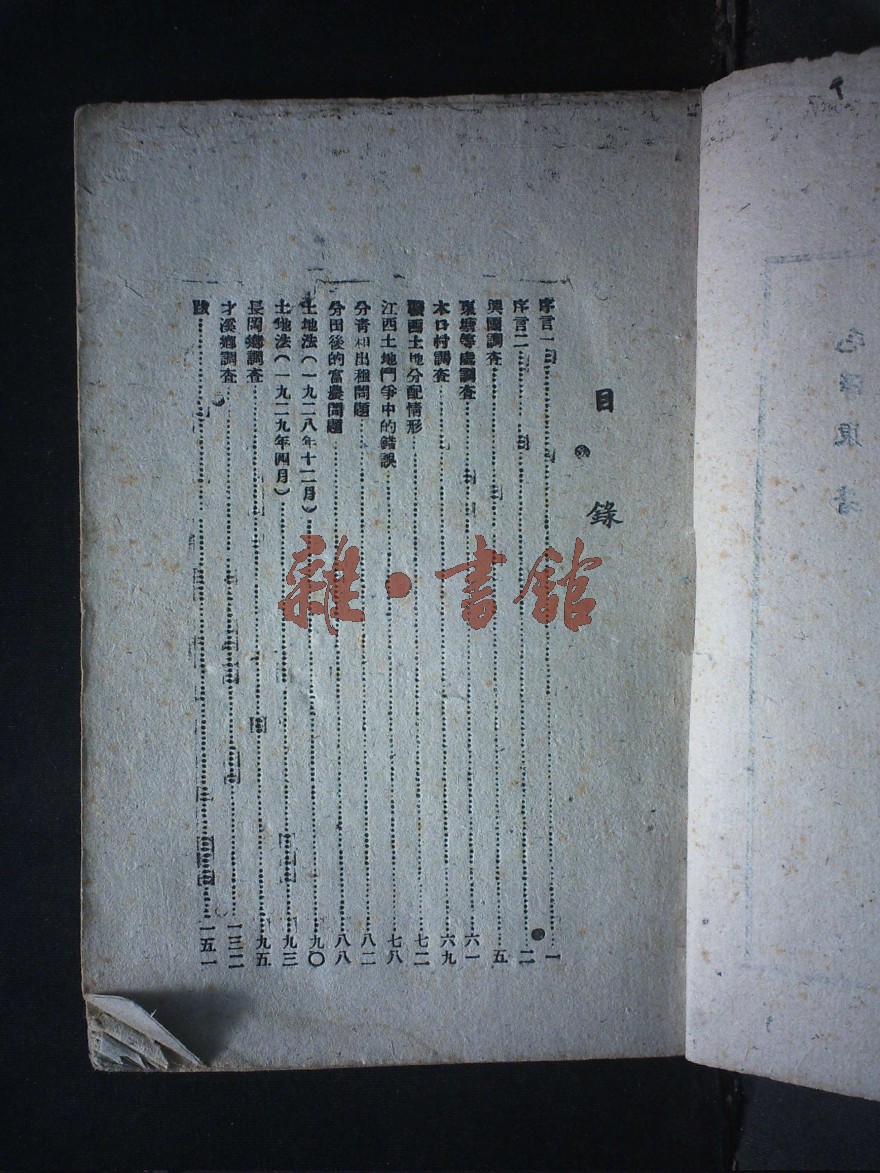 目錄
序言一……一
序言二……二
興國調查……五
東塘等處調查……六一
木口村調查……六九
贛西土地分配情形……七二
江西土地鬥爭中的錯誤……七八
分青和出租問題……八二
分田後的富農問題……八八
土地法(一九二八年十二月)……九〇
土地法(一九二九年四月)……九三
長岡鄉調查……九五
才溪鄉調查……一三二
跋……一五一
雜·書館